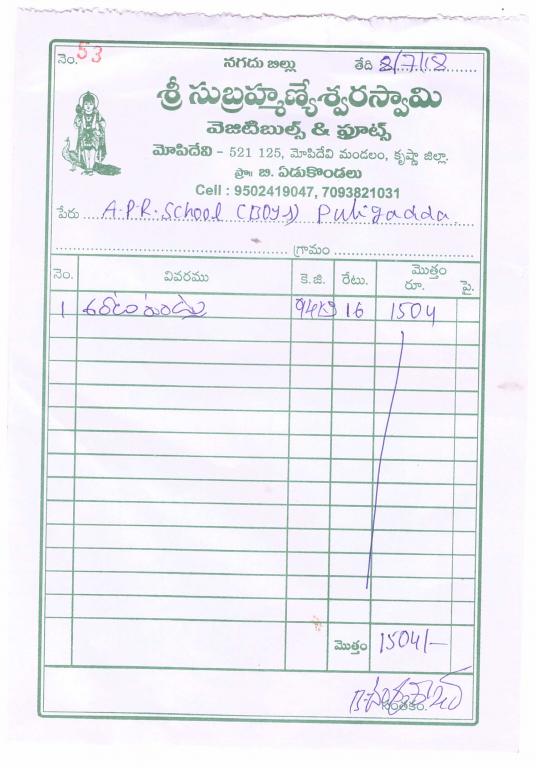 నెం. 53 నగదు బిల్లు తేది 8/7/18
శ్రీ సుబ్రహ్మణ్యేశ్వరస్వామి
వెజిటిబుల్స్ & ఫ్రూట్స్
మోపిదేవి - 521 125, మోపిదేవి మండలం, కృష్ణా జిల్లా.
ప్రొ॥ బి. ఏడుకొండలు
Cell : 9502419047, 7093821031
పేరు A.P.R. School (BOYS) Puligadda
గ్రామం
నెం. వివరము కె.జి. రేటు. మొత్తం
రూ. పై.
1 94 16 1504
మొత్తం 1504/-
సంతకం.